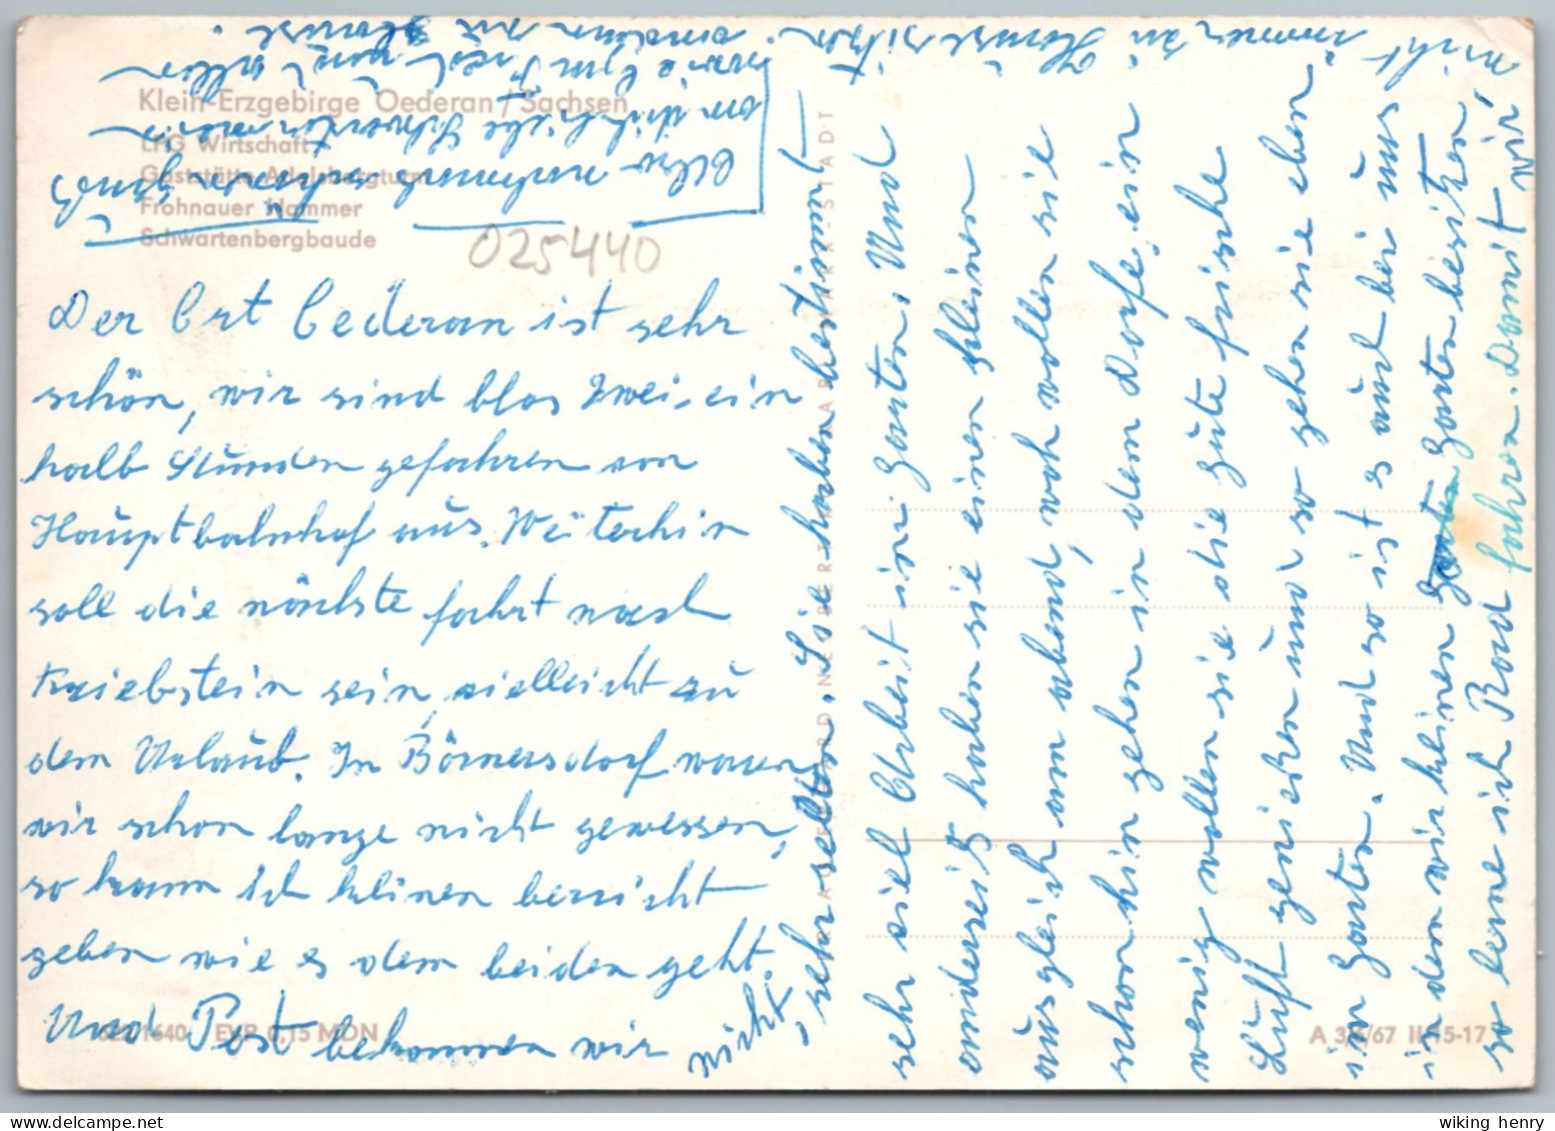 Klein-Erzgebirge Oederan / Sachsen
LPG Wirtschaft
Gaststätte Adelsbergturm
Frohnauer Hammer
Schwartenbergbaude
025440
Der Ort Oederan ist sehr
schön, wir sind blos zwei, ein
halb Stunden gefahren von
Hauptbahnhof aus. Weiterhin
soll die nächste fahrt nach
Kriebstein sein, vielleicht zu
dem Urlaub. In Börnersdorf waren
wir schon lange nicht gewessen,
so kann ich keinen bericht
geben wie es dem beiden geht.
Und Post bekommen wir nicht,
EVP 0,15 MDN
sehr selten. Sie haben bestimmt
sehr viel Arbeit in Garten. Und
anderseit haben sie einen kleinen
ausgleich am abend, woh wollen sie
schon hin gehen in dem Dorfe, ein
wenig wollen sie die gute frische
Luft genießen und so gehen sie eben
in Garten. Und so ist es auch bei uns
in dem wir keinen Garten besitzen,
so lerne ich Rad fahren. Damit wir
nicht immer zu Hause sitzen.
Also nochmals schönen Gruß
an dich liebe
und allen
anderen zu Hause.
A 3/6/67 II-15-17
wiking henry